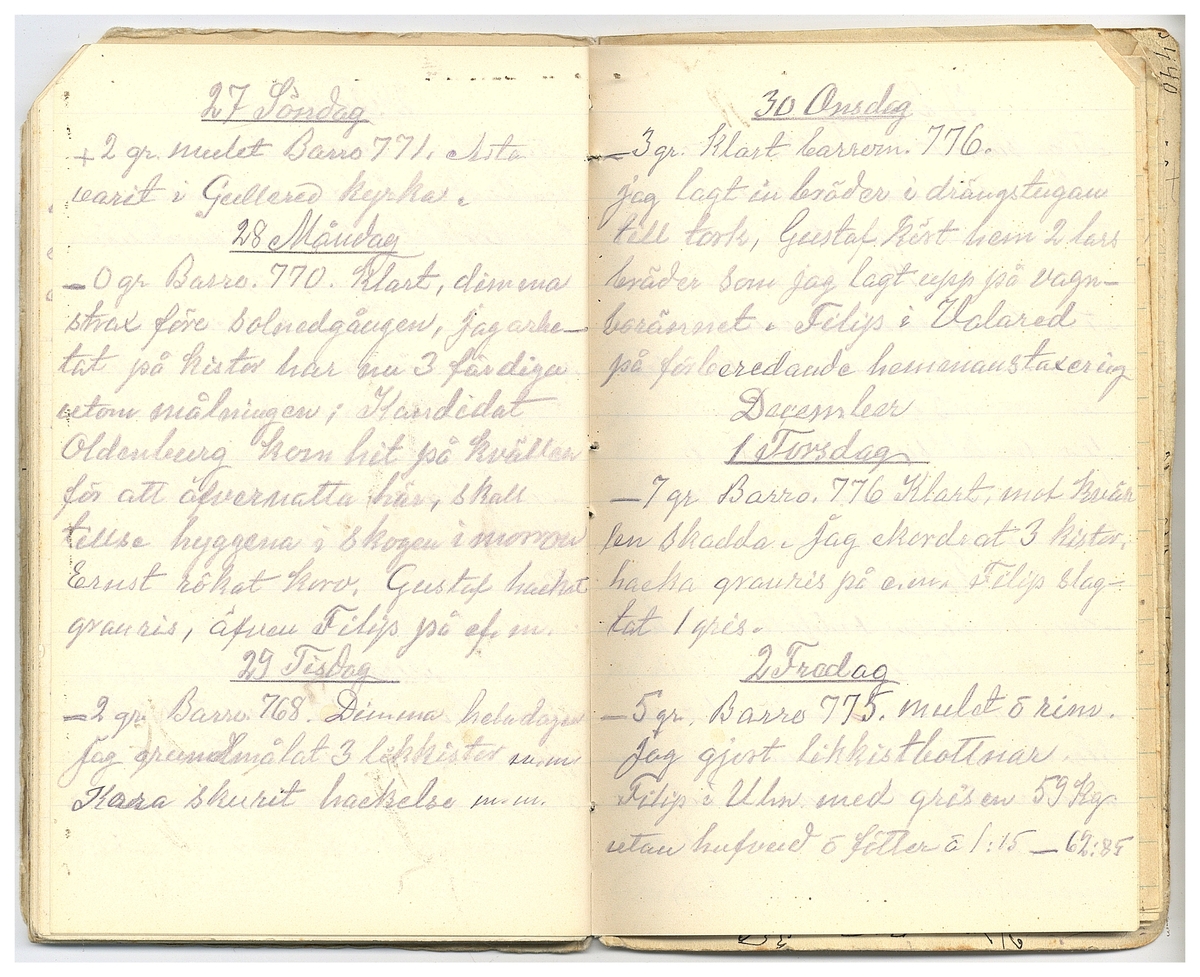 27 Söndag
+2 gr. mulet Barro 771. Asta
varit i Gullered kyrka.
28 Måndag
—0 gr Barro. 770. Klart, dimma
strax före solnedgången, jag arbe-
tat på kistor har nu 3 färdiga
utom målningen; Kandidat
Oldenburg kom hit på kvällen
för att öfvernatta här, skall
tillse hyggena i skogen i morron
Ernst rökat korv. Gustaf hackat
granris, äfven Filip på ef.m.
29 Tisdag
—2 gr. Barro. 768. Dimma hela dagen
Jag grundmålat 3 likkistor m.m
skurit hackelse m.m.
30 Onsdag
—3 gr. Klart barrom. 776.
jag lagt in bräder i drängstugan
till tork, Gustaf kört hem 2 lass
bräder som jag lagt upp på vagn-
borännet. Filip i Valared
på förberedande hemmanstaxering
December
1 Torsdag
—7 gr Barro. 776 Klart, mot kväl
len skadda. Jag ekorderat 3 kistor,
hacka granris på e.m. Filip slag-
tat 1 gris.
2 Fredag
—5 gr. Barro 775. mulet o rim.
Jag gjort likkistbottnar.
Filip i Ulm med grisen 59 Kg
utan hufvud o fötter a 1:15 — 62:85
440